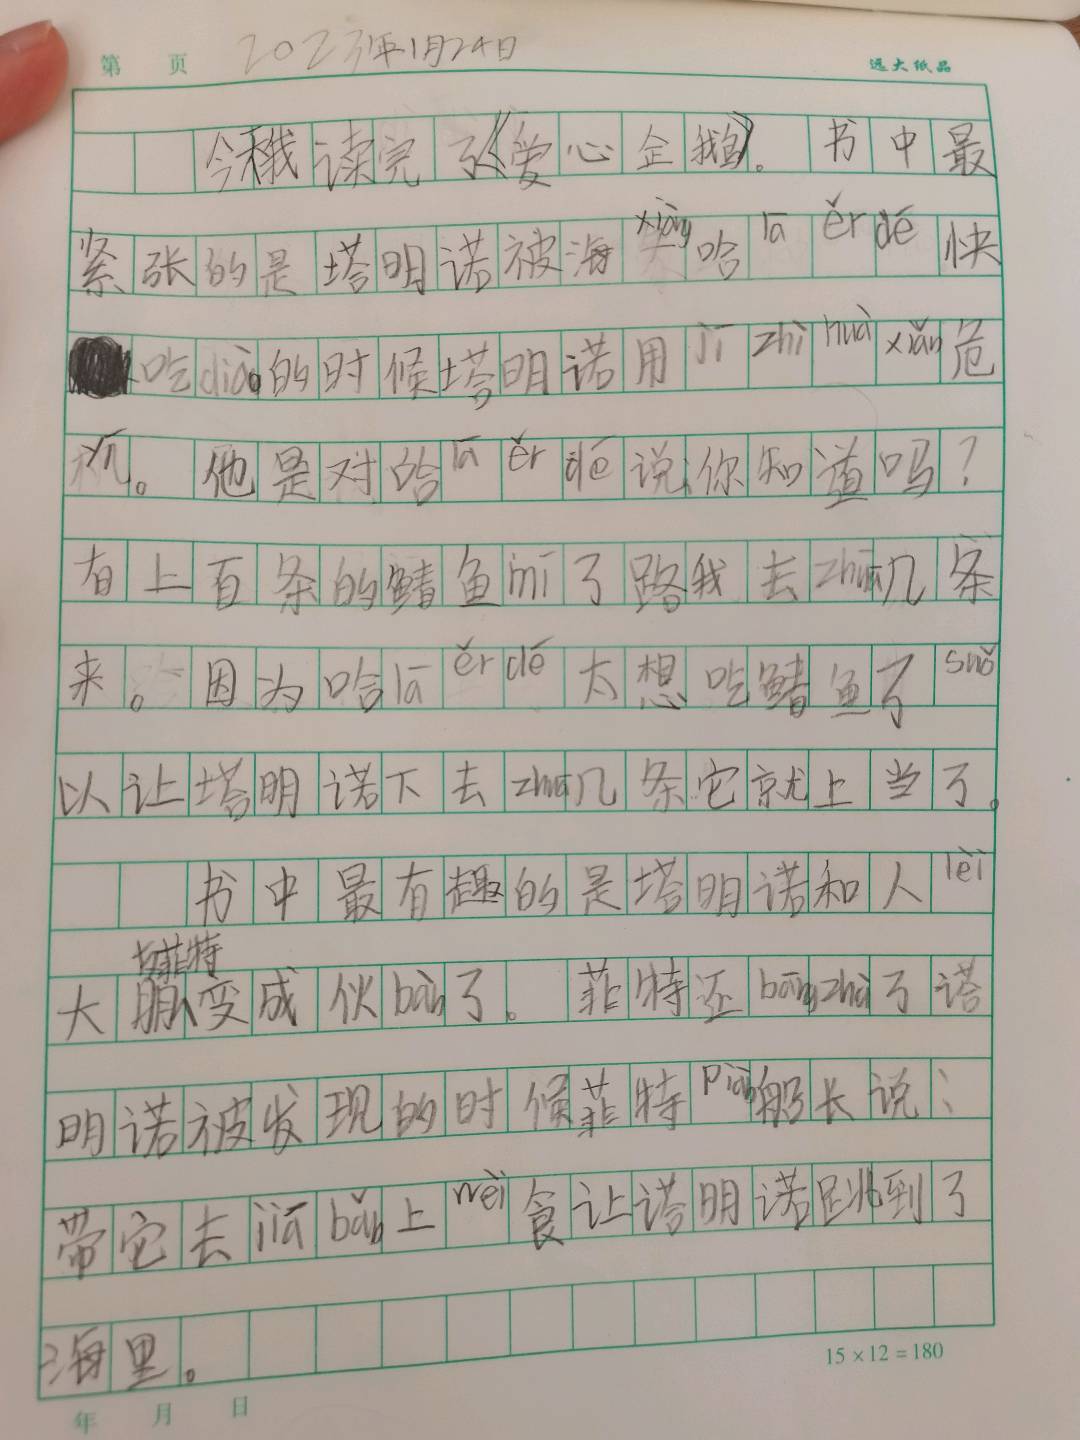 第 页 2023年1月24日 远大纸品
今天我读完了《爱心企鹅》。书中最
紧张的是塔明诺被海xiàng哈lā ěr dé快
吃diào的时候塔明诺用jī zhì huà xiǎn危
机。他是对哈lā ěr dé说:你知道吗?
有上百条的鳍鱼mí了路我去zhuā几条
来。因为哈lā ěr dé太想吃鳍鱼了suǒ
以让塔明诺下去zhuā几条它就上当了。
书中最有趣的是塔明诺和人lèi
大朋友菲特变成伙bàn了。菲特还bāng zhù了塔
明诺被发现的时候菲特piàn船长说:
带它去jiǎ bǎn上wèi食让塔明诺跳到了
海里。
15×12=180
年 月 日